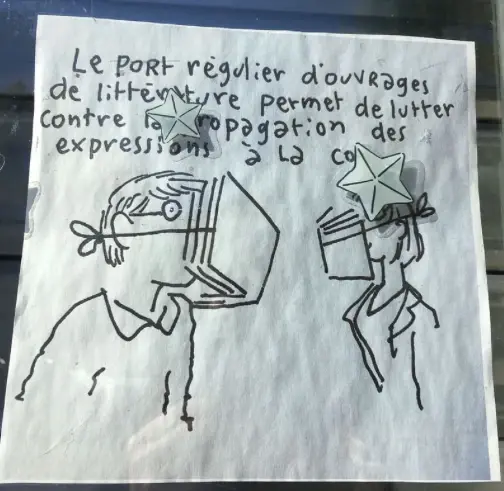 Le port régulier d'ouvrages
de littérature permet de lutter
contre la propagation des
expressions à la